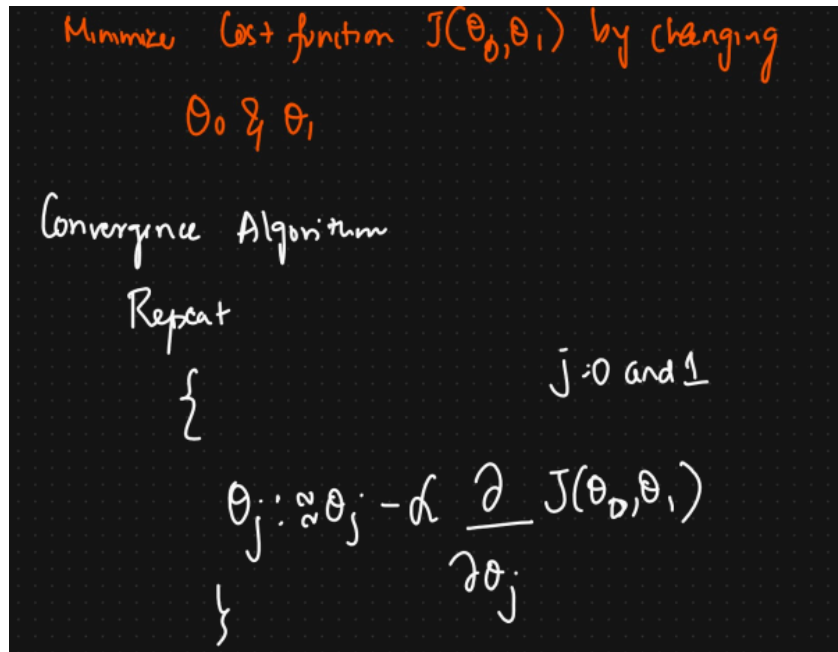 Minimize Cost function J(θ₀,θ₁) by changing
θ₀ & θ₁
Convergence Algorithm
Repeat
{
j:0 and 1
θj :≈ θj - α ∂/∂θj J(θ₀,θ₁)
}